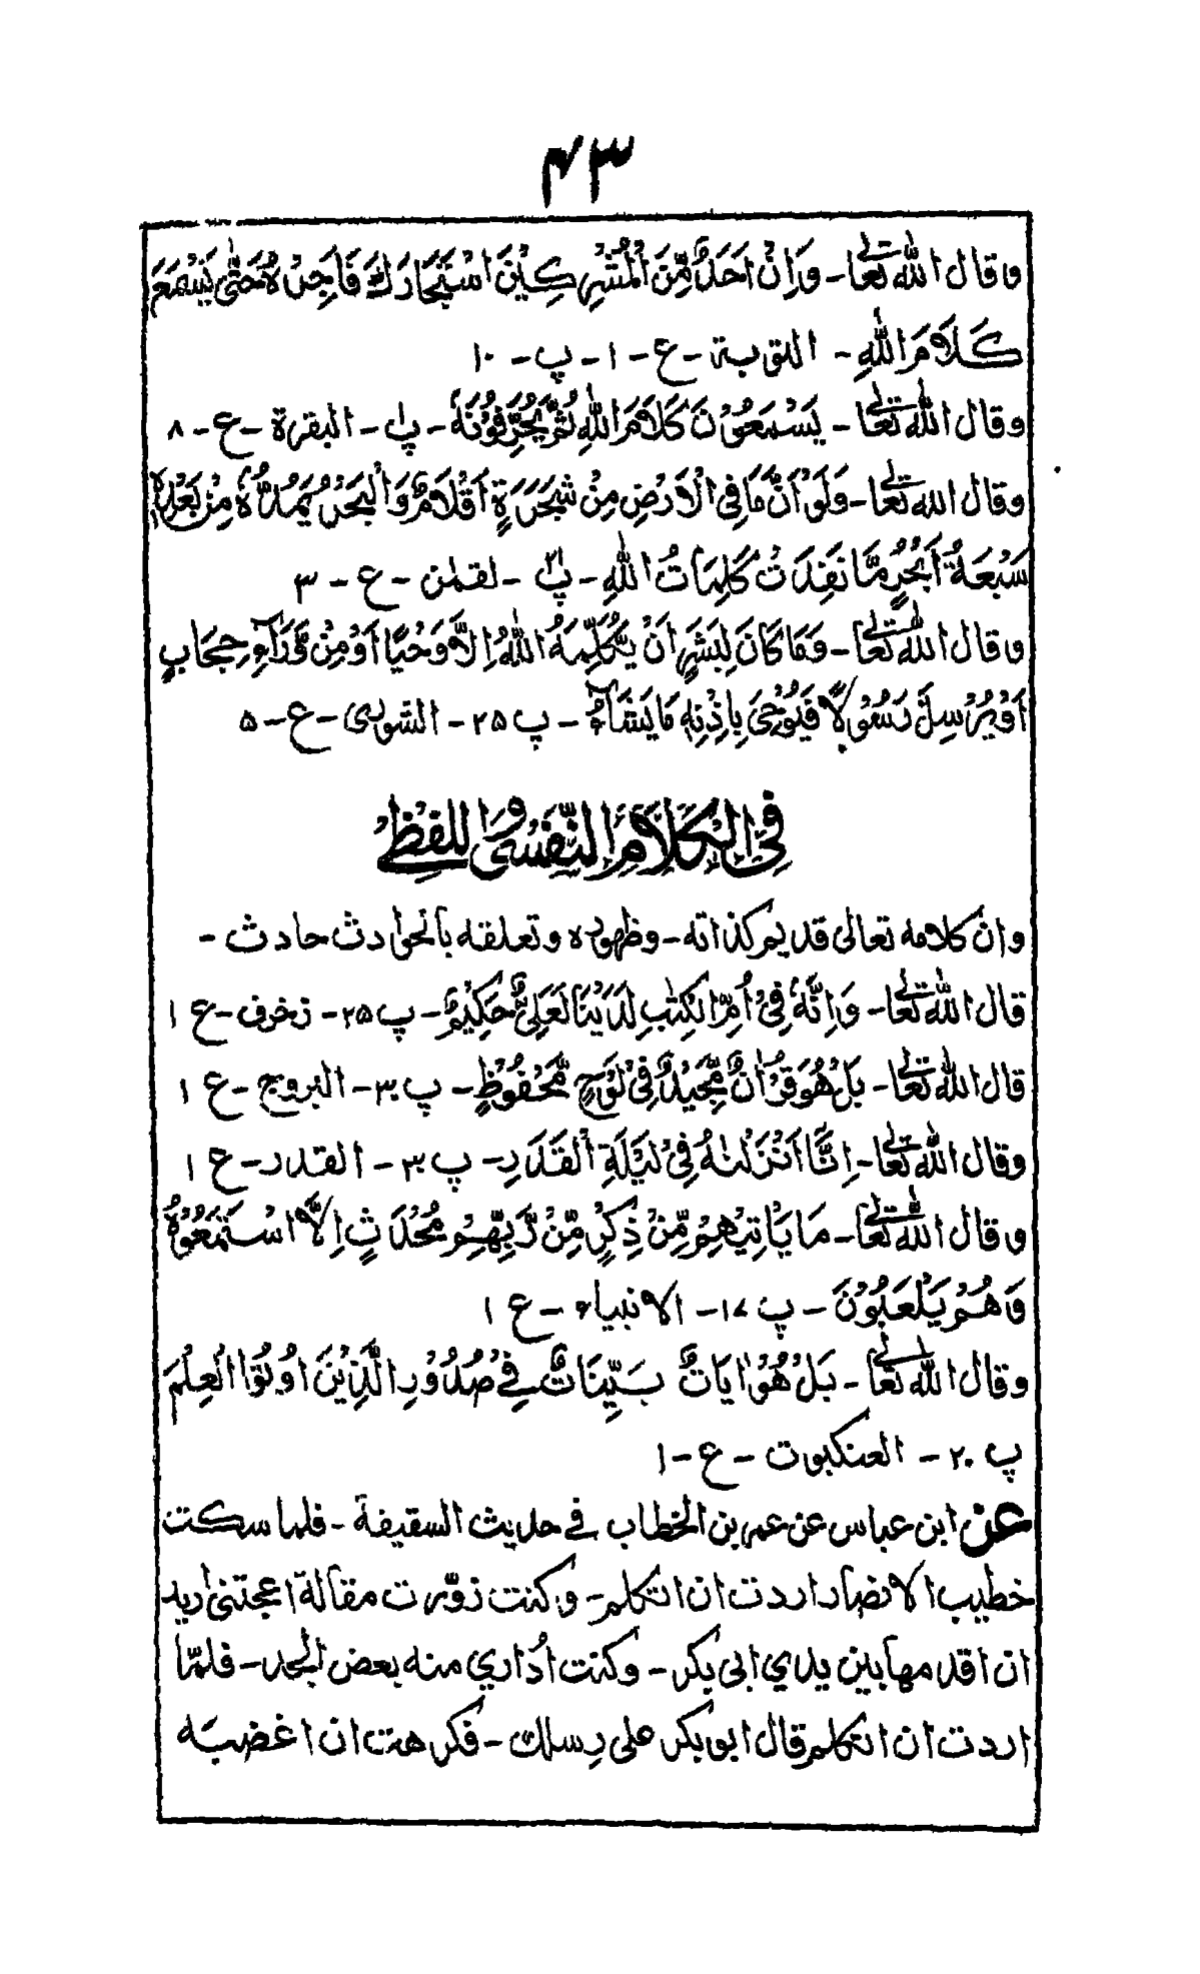 ۴۳
وقال الله تعالى - وَاِنْ اَحَدٌ مِّنَ الْمُشْرِكِيْنَ اسْتَجَارَكَ فَاَجِرْهُ حَتّٰى يَسْمَعَ
كَلَامَ اللهِ - التوبة - ع - ۱ - پ - ۱۰
وقال الله تعالى - يَسْمَعُوْنَ كَلَامَ اللهِ ثُمَّ يُحَرِّفُوْنَهٗ - پ۱ - البقرة - ع - ۸
وقال الله تعالى - وَلَوْ اَنَّ مَا فِى الْاَرْضِ مِنْ شَجَرَةٍ اَقْلَامٌ وَالْبَحْرُ يَمُدُّهٗ مِنْ بَعْدِهٖ
سَبْعَةُ اَبْحُرٍ مَّا نَفِدَتْ كَلِمَاتُ اللهِ - پ۲۱ - لقمٰن - ع - ۳
وقال الله تعالى - وَمَا كَانَ لِبَشَرٍ اَنْ يُّكَلِّمَهُ اللهُ اِلَّا وَحْيًا اَوْ مِنْ وَّرَآءِ حِجَابٍ
اَوْ يُرْسِلَ رَسُوْلًا فَيُوْحِىَ بِاِذْنِهٖ مَا يَشَآءُ - پ ۲۵ - الشورى - ع - ۵
فِى الْكَلَامِ النَّفْسِى وَاللفْظِى
وان كلامه تعالى قديم كذاته - وظهوره وتعلقه بالحوادث حادث -
قال الله تعالى - وَاِنَّهٗ فِىْ اُمِّ الْكِتٰبِ لَدَيْنَا لَعَلِىٌّ حَكِيْمٌ - پ ۲۵ - زخرف - ع ۱
قال الله تعالى - بَلْ هُوَ قُرْاٰنٌ مَّجِيْدٌ فِىْ لَوْحٍ مَّحْفُوْظٍ - پ ۳۰ - البروج - ع ۱
وقال الله تعالى - اِنَّا اَنْزَلْنٰهُ فِىْ لَيْلَةِ الْقَدْرِ - پ ۳۰ - القدر - ع ۱
وقال الله تعالى - مَا يَاْتِيْهِمْ مِّنْ ذِكْرٍ مِّنْ رَّبِّهِمْ مُحْدَثٍ اِلَّا اسْتَمَعُوْهُ
وَهُمْ يَلْعَبُوْنَ - پ ۱۷ - الانبياء - ع ۱
وقال الله تعالى - بَلْ هُوَ اٰيَاتٌ بَيِّنَاتٌ فِىْ صُدُوْرِ الَّذِيْنَ اُوْتُوا الْعِلْمَ
پ ۲۰ - العنكبوت - ع - ۱
عن ابن عباس عن عمر بن الخطاب فى حديث السقيفة - فلما سكت
خطيب الانصار اردت ان اتكلم - وكنت زوّرت مقالة اعجبتنى اريد
ان اقدمها بين يدي ابى بكر - وكنت اُداري منه بعض الحد - فلمّا
اردت ان اتكلم قال ابو بكر على رِسلك - فكرهت ان اغضبَه